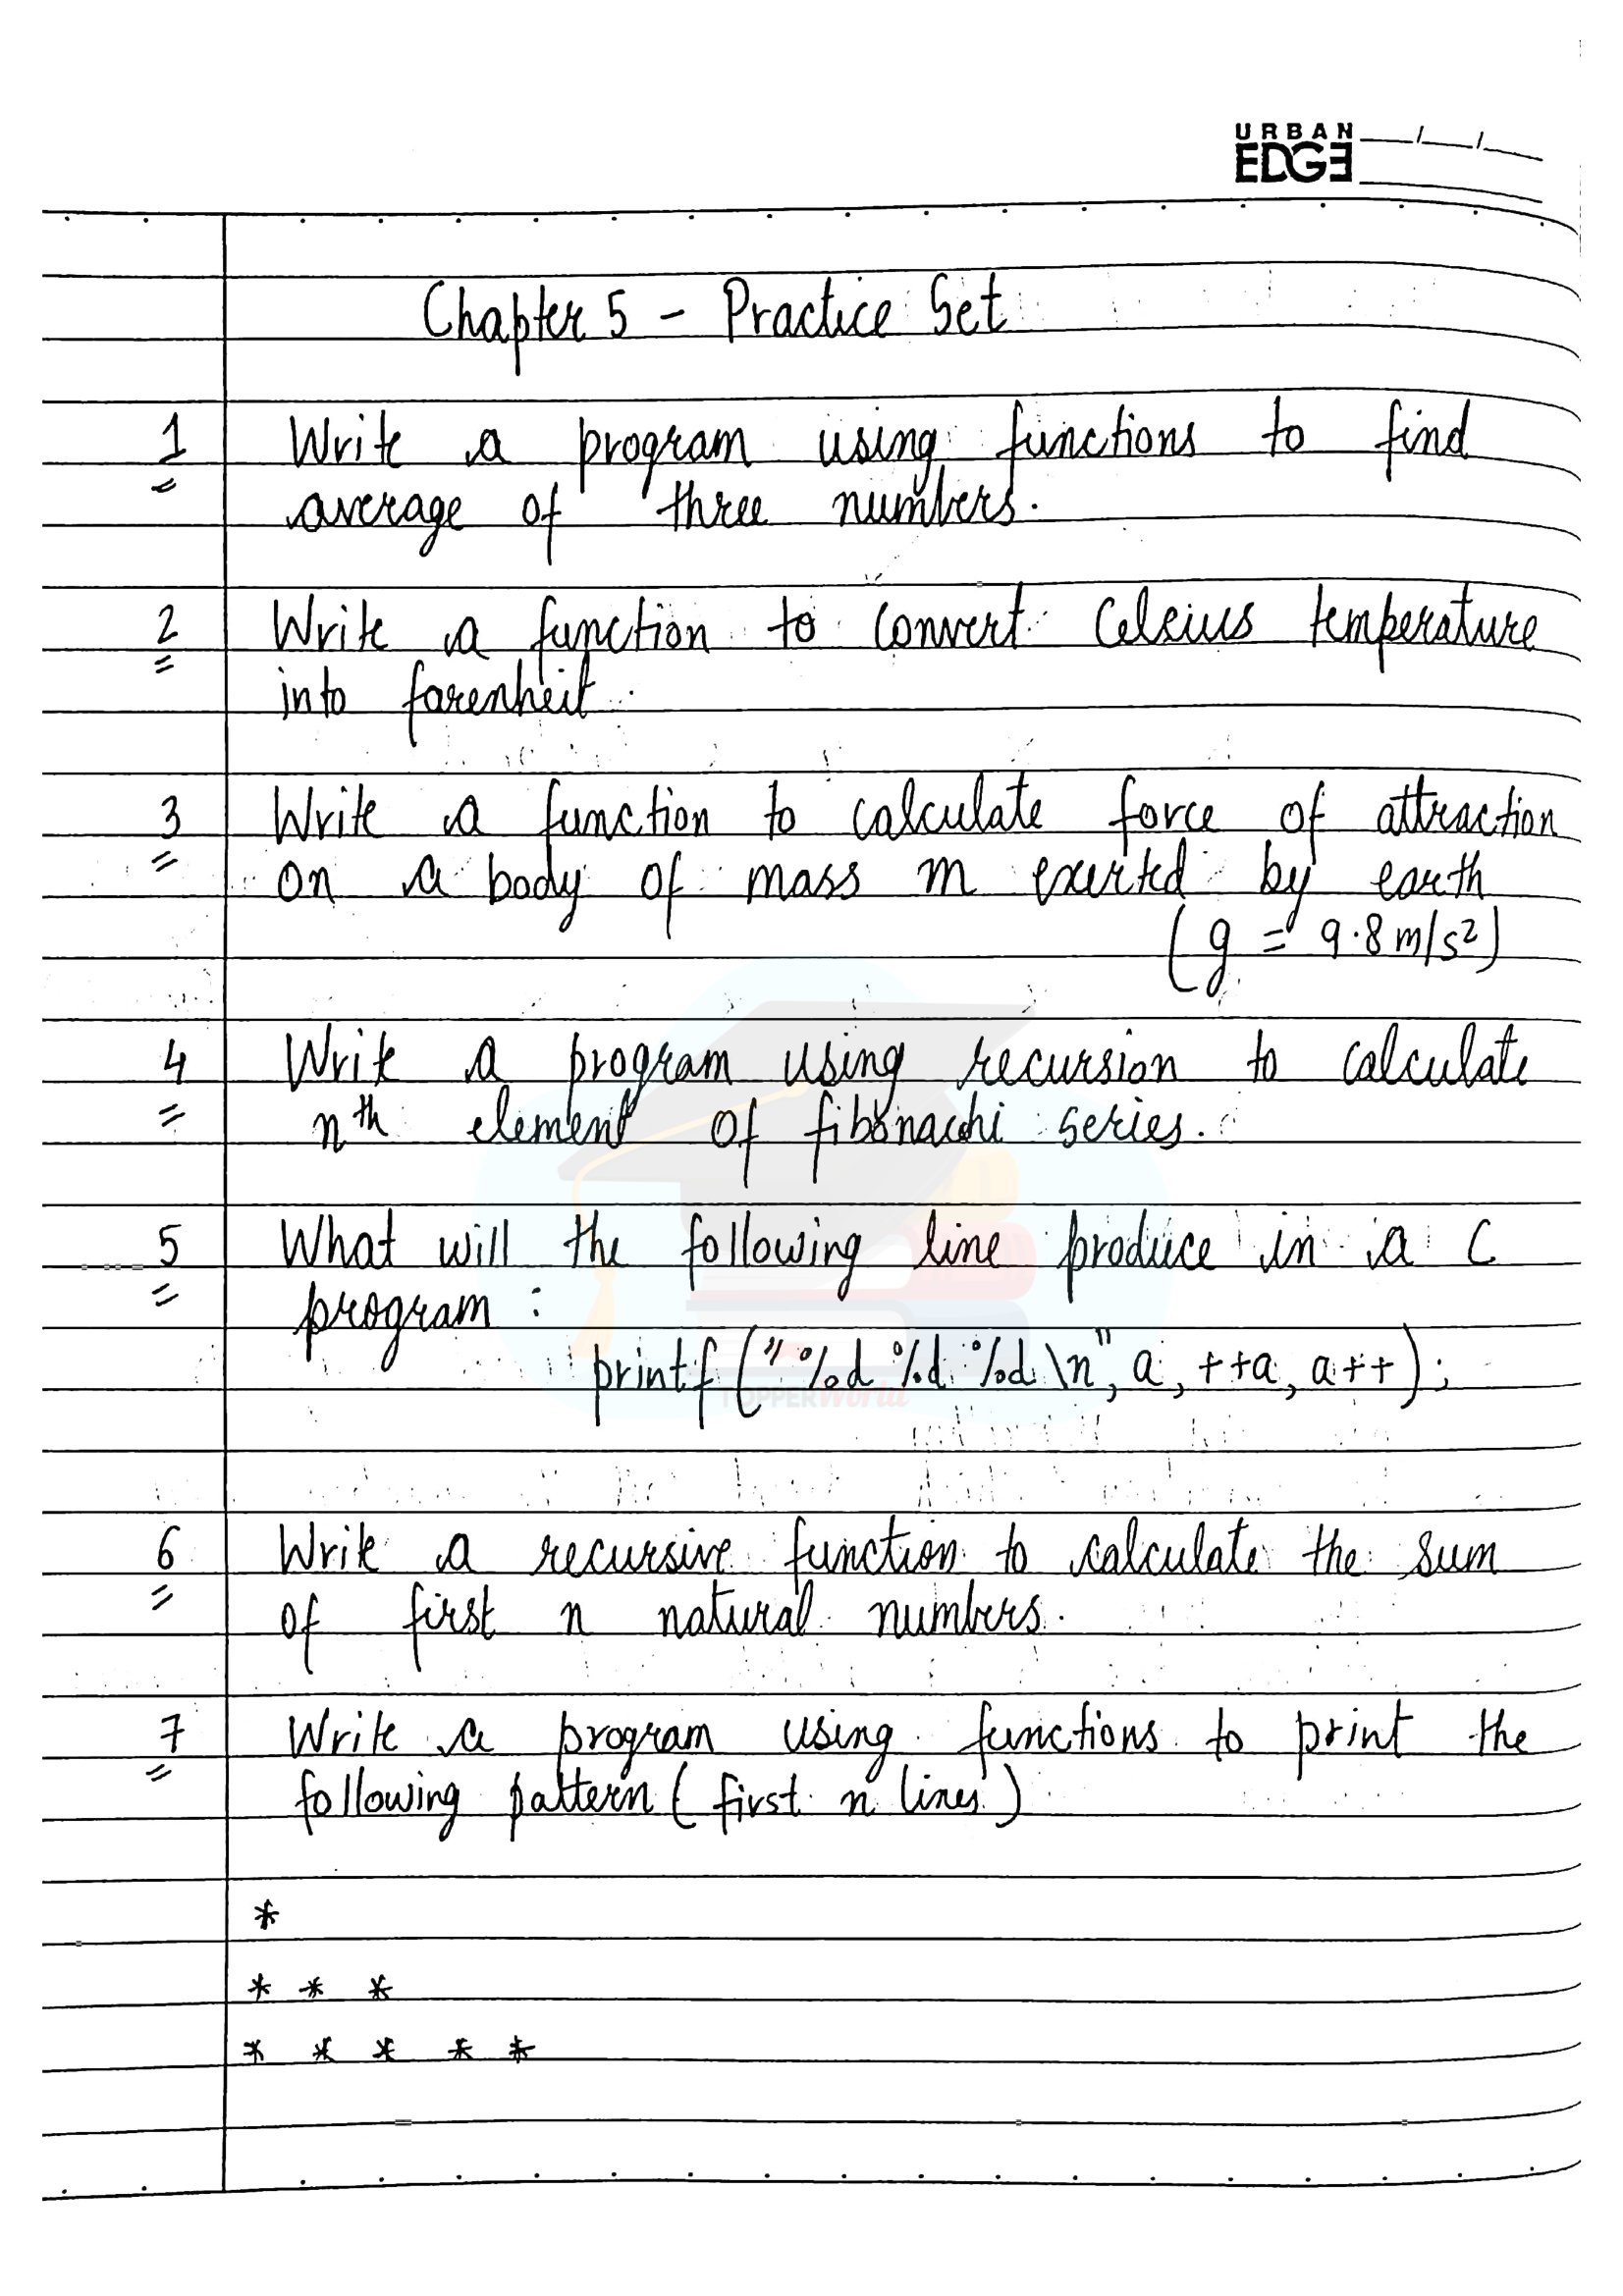 URBAN
EDGE
Chapter 5 - Practice Set
1 Write a program using functions to find
average of three numbers.
2 Write a function to convert Celsius temperature
into farenheit
3 Write a function to calculate force of attraction
on a body of mass m exerted by earth
(g = 9.8 m/s²)
4 Write a program using recursion to calculate
nth element of fibonachi series.
5 What will the following line produce in a C
program :
printf ("%d %d %d \n", a, ++a, a++);
TOPPERWorld
6 Write a recursive function to calculate the sum
of first n natural numbers.
7 Write a program using functions to print the
following pattern (first n lines)
*
* * *
* * * * *